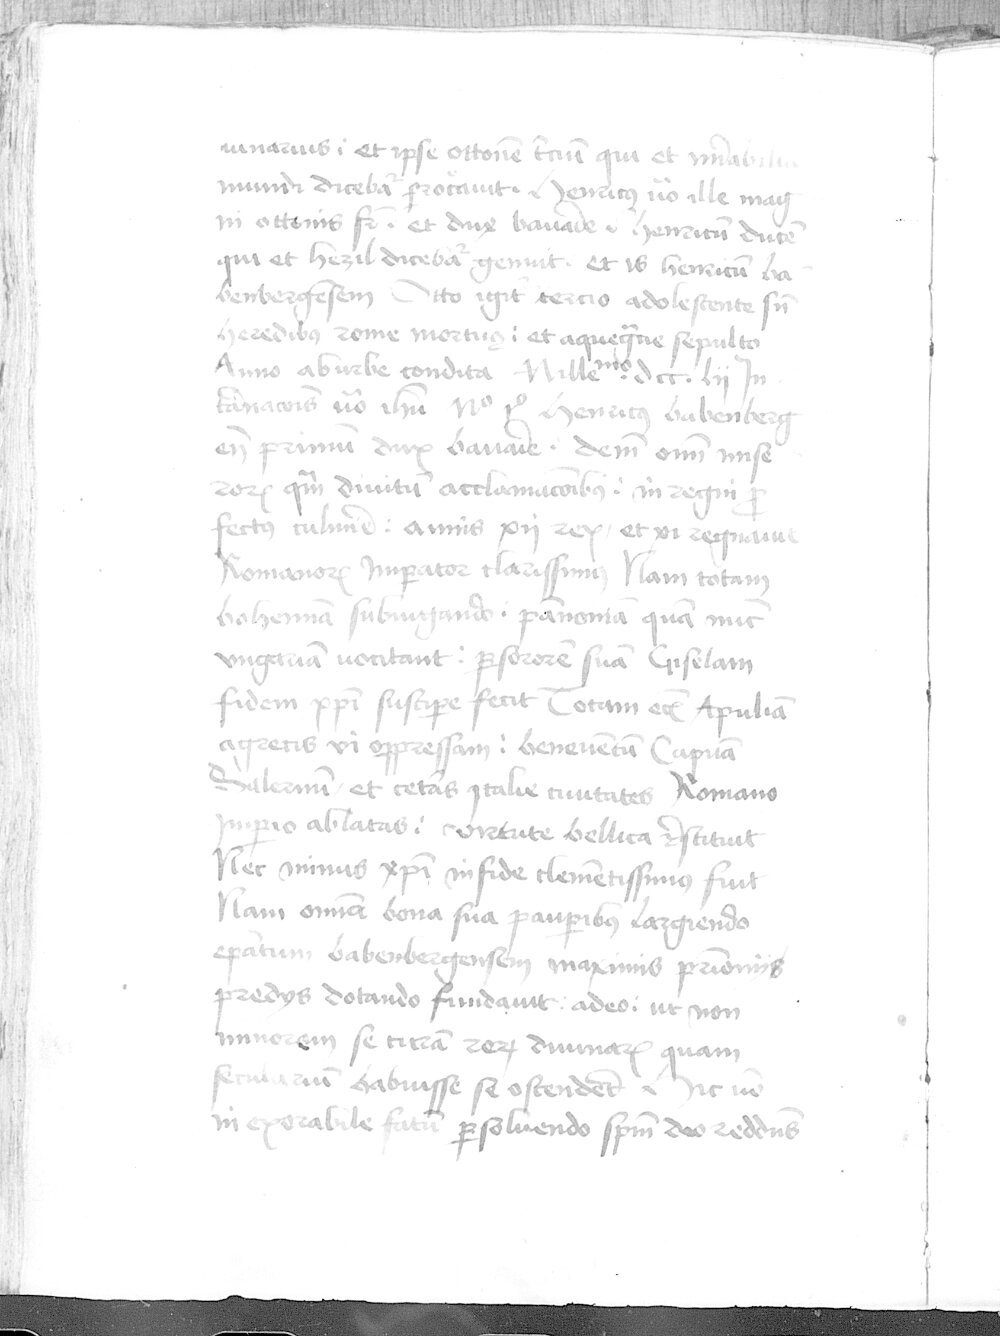 iunarius i et ipse ottonē t̄ciū qui et mīrabilia
mundi dicebat᷑ procͣauit · Henricꝯ ūo ille mag
ni ottonis fr̄ · et dux bauarie · henricū ducē
qui et hezil dicebāt᷑ genuit · Et is henricū ba
benbergēsem Otto igit᷑ tercio adolescente sn̄
heredibꝯ rome mortuꝯ : et aquegͣni sepulto
Anno ab urbe condita Mille mͦ · dcc · lij In
carnacōis ūo ihū Mͦ pͦ Henricꝯ babenberg
en̄ primū dux bauarie · dem̄ om̄ mise
rorꝝ qm̄ diuitū acclamacōibꝯ : in regni ꝓ
fectꝯ culmīe : annis xij rex / et xi regnauit
Romanorꝝ Imperator clarissimꝯ Nam totam
bohemiā subiugando · panoniā quā nūc
vngariā uocitant : ꝑ sororē suā Giselam
fidem xp̄i suscipe fecit Totam ec̄ Apuliā
a grecis vi oppressam : beneuētū Capuā
Salernū / et cetās Italie ciuitates Romano
Imperio ablatas : virtute bellica r̄stituit
Nec minus xp̄i in fide clemētissimꝯ fuit
Nam omīa bona sua pauperibꝯ largiendo
epātum babenbergensem maximis
predijs dotando fundauit : adeo : ut non
minorem se curā rerꝝ diuinarꝝ quam
seculariū habuisse se ostendēt · Hic ūo
in exorabile fatū ꝑsoluendo spm̄ deo reddēs